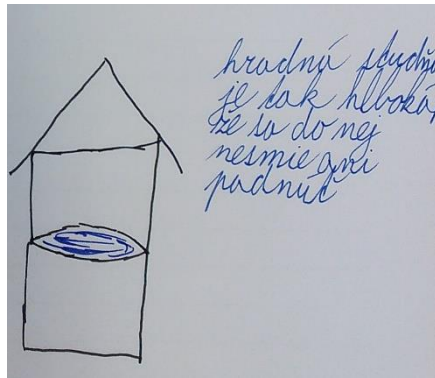 hradná studňa
je tak hlboká,
že sa do nej
nesmie ani
padnúť